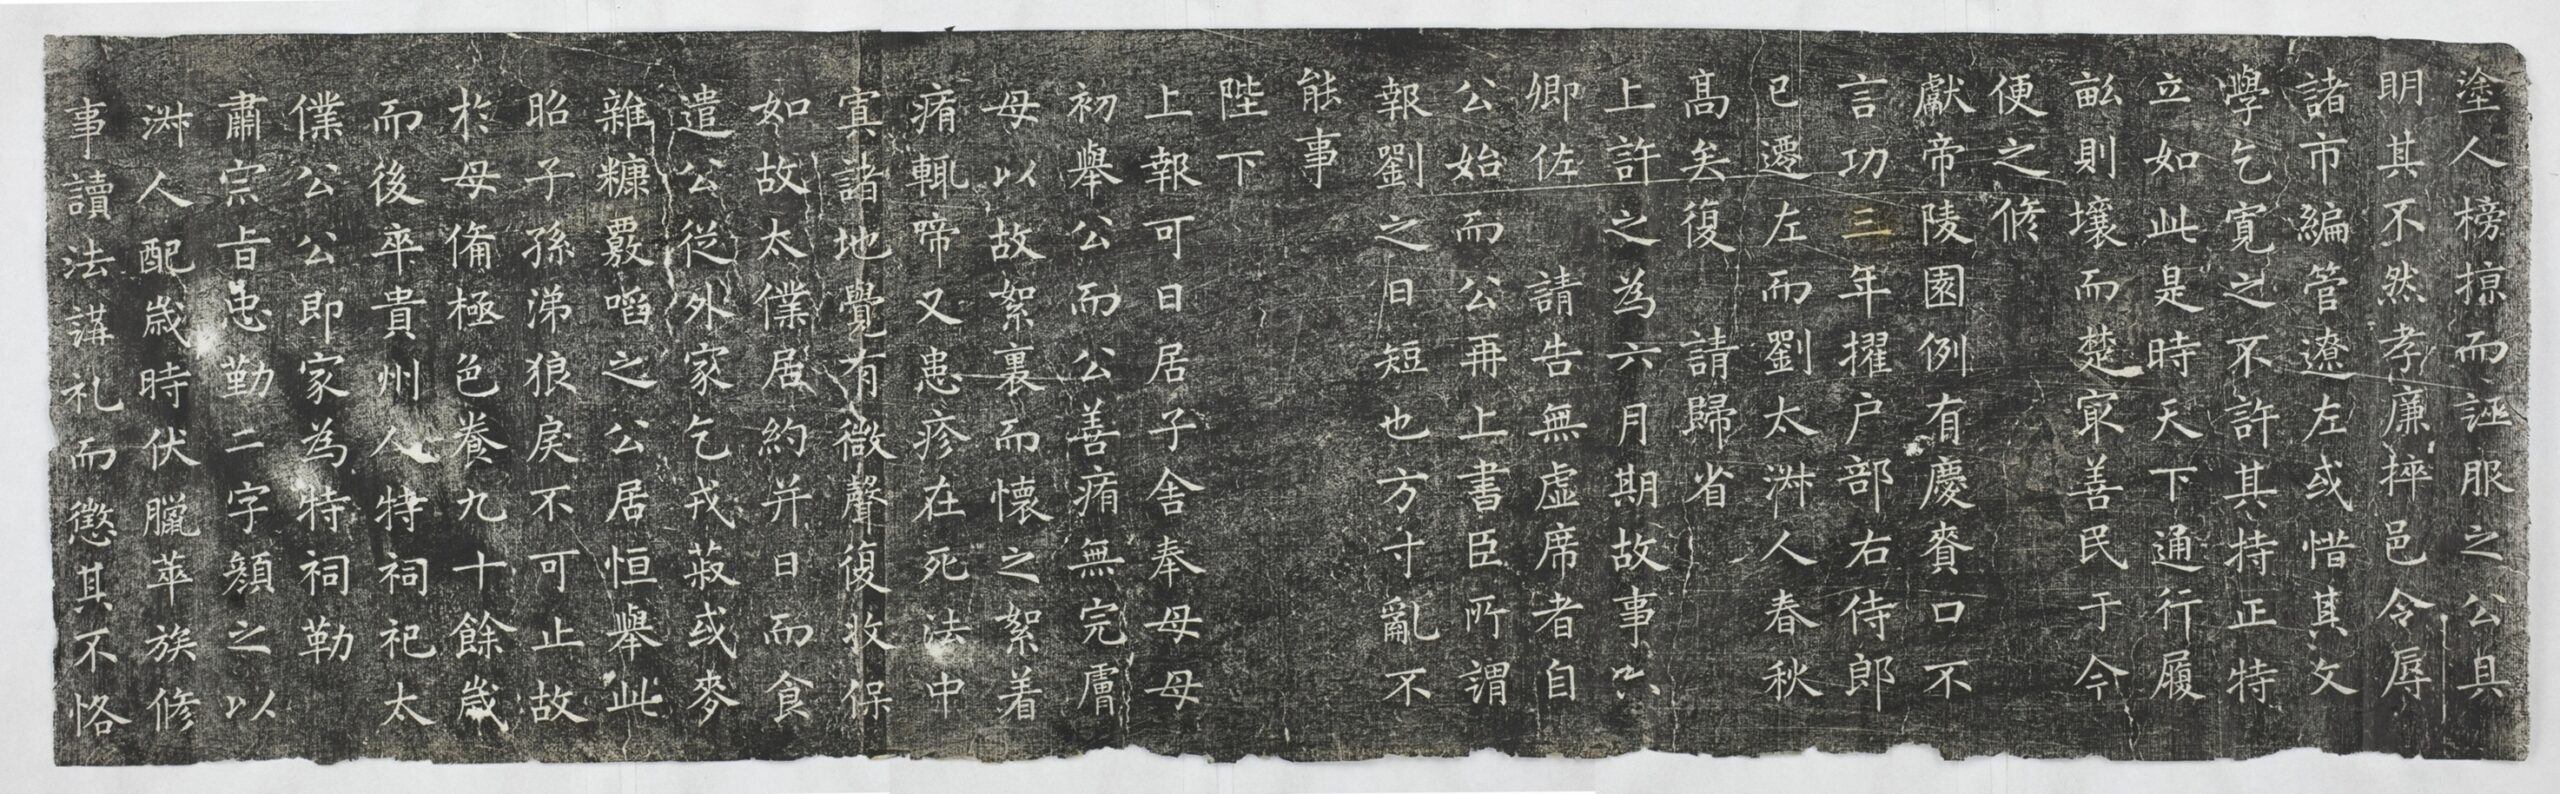 塗人榜掠而誣服之公具
明其不然孝廉捽邑令辱
諸市編管遼左或惜其文
學乞寬之不許其持正特
立如此是時天下通行履
畝則壤而楚寂善民于今
便之修
獻帝陵園例有慶賚口不
言功三年擢户部右侍郎
已遷左而劉太淋人春秋
高矣復請歸省
上許之為六月期故事六
卿佐請告無虛席者自
公始而公再上書臣所謂
報劉之日短也方寸亂不
能事
陛下
上報可日居子舍奉母母
初舉公而公善痏無完膚
母以故絮裏而懷之絮着
痏輒啼又患疹在死法中
寘諸地覺有微聲復收保
如故太僕居約并日而食
遣公從外家乞戎菽或麥
雜糠覈啗之公居恒舉此
昭子孫涕狼戾不可止故
於母備極色養九十餘歲
而後卒貴州人特祠祀太
僕公公即家為特祠勒
肅宗旨忠勤二字顏之以
淋人配歲時伏臘萃族修
事讀法講礼而懲其不恪